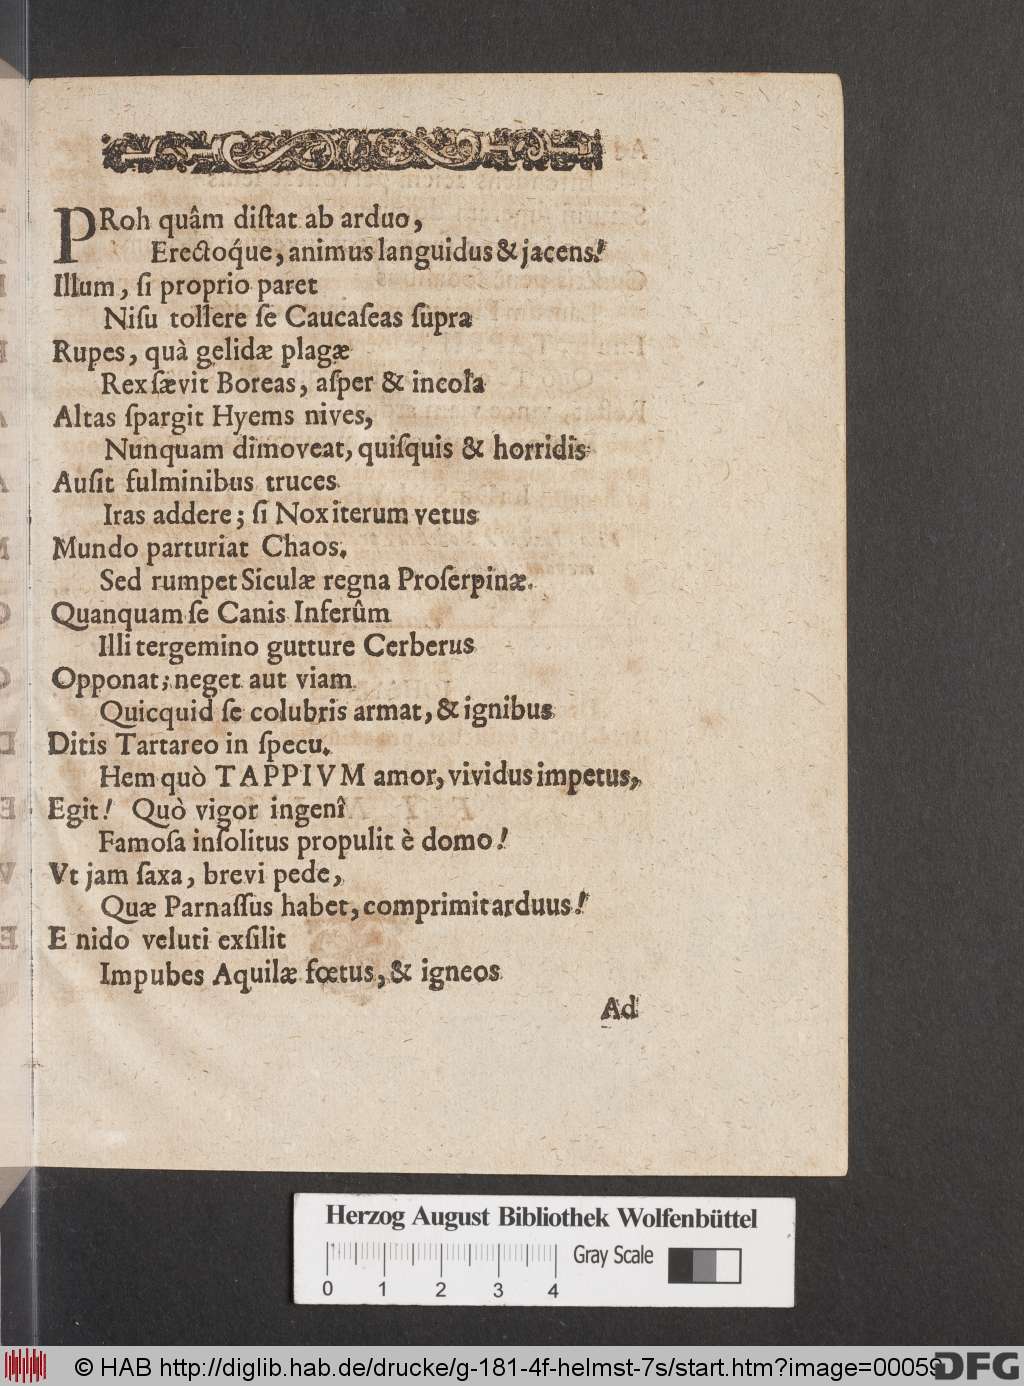 PRoh quâm diſtat ab arduo,
Erectoq́ue, animus languidus & jacens!
Illum, ſi proprio paret
Niſu tollere ſe Caucaſeas ſupra
Rupes, quà gelidæ plagæ
Rex ſævit Boreas, aſper & incola
Altas ſpargit Hyems nives,
Nunquam dimoveat, quiſquis & horridis
Auſit fulminibus truces
Iras addere; ſi Nox iterum vetus
Mundo parturiat Chaos.
Sed rumpet Siculæ regna Proſerpinæ.
Quanquam ſe Canis Inferûm
Illi tergemino gutture Cerberus
Opponat; neget aut viam
Quicquid ſe colubris armat, & ignibus
Ditis Tartareo in ſpecu.
Hem quò TAPPIVM amor, vividus impetus,
Egit! Quò vigor ingenî
Famoſa inſolitus propulit è domo!
Vt jam ſaxa, brevi pede,
Quæ Parnaſſus habet, comprimit arduus!
E nido veluti exſilit
Impubes Aquilæ fœtus, & igneos
Ad
Herzog August Bibliothek Wolfenbüttel
Gray Scale
0 1 2 3 4
© HAB http://diglib.hab.de/drucke/g-181-4f-helmst-7s/start.htm?image=00059
DFG